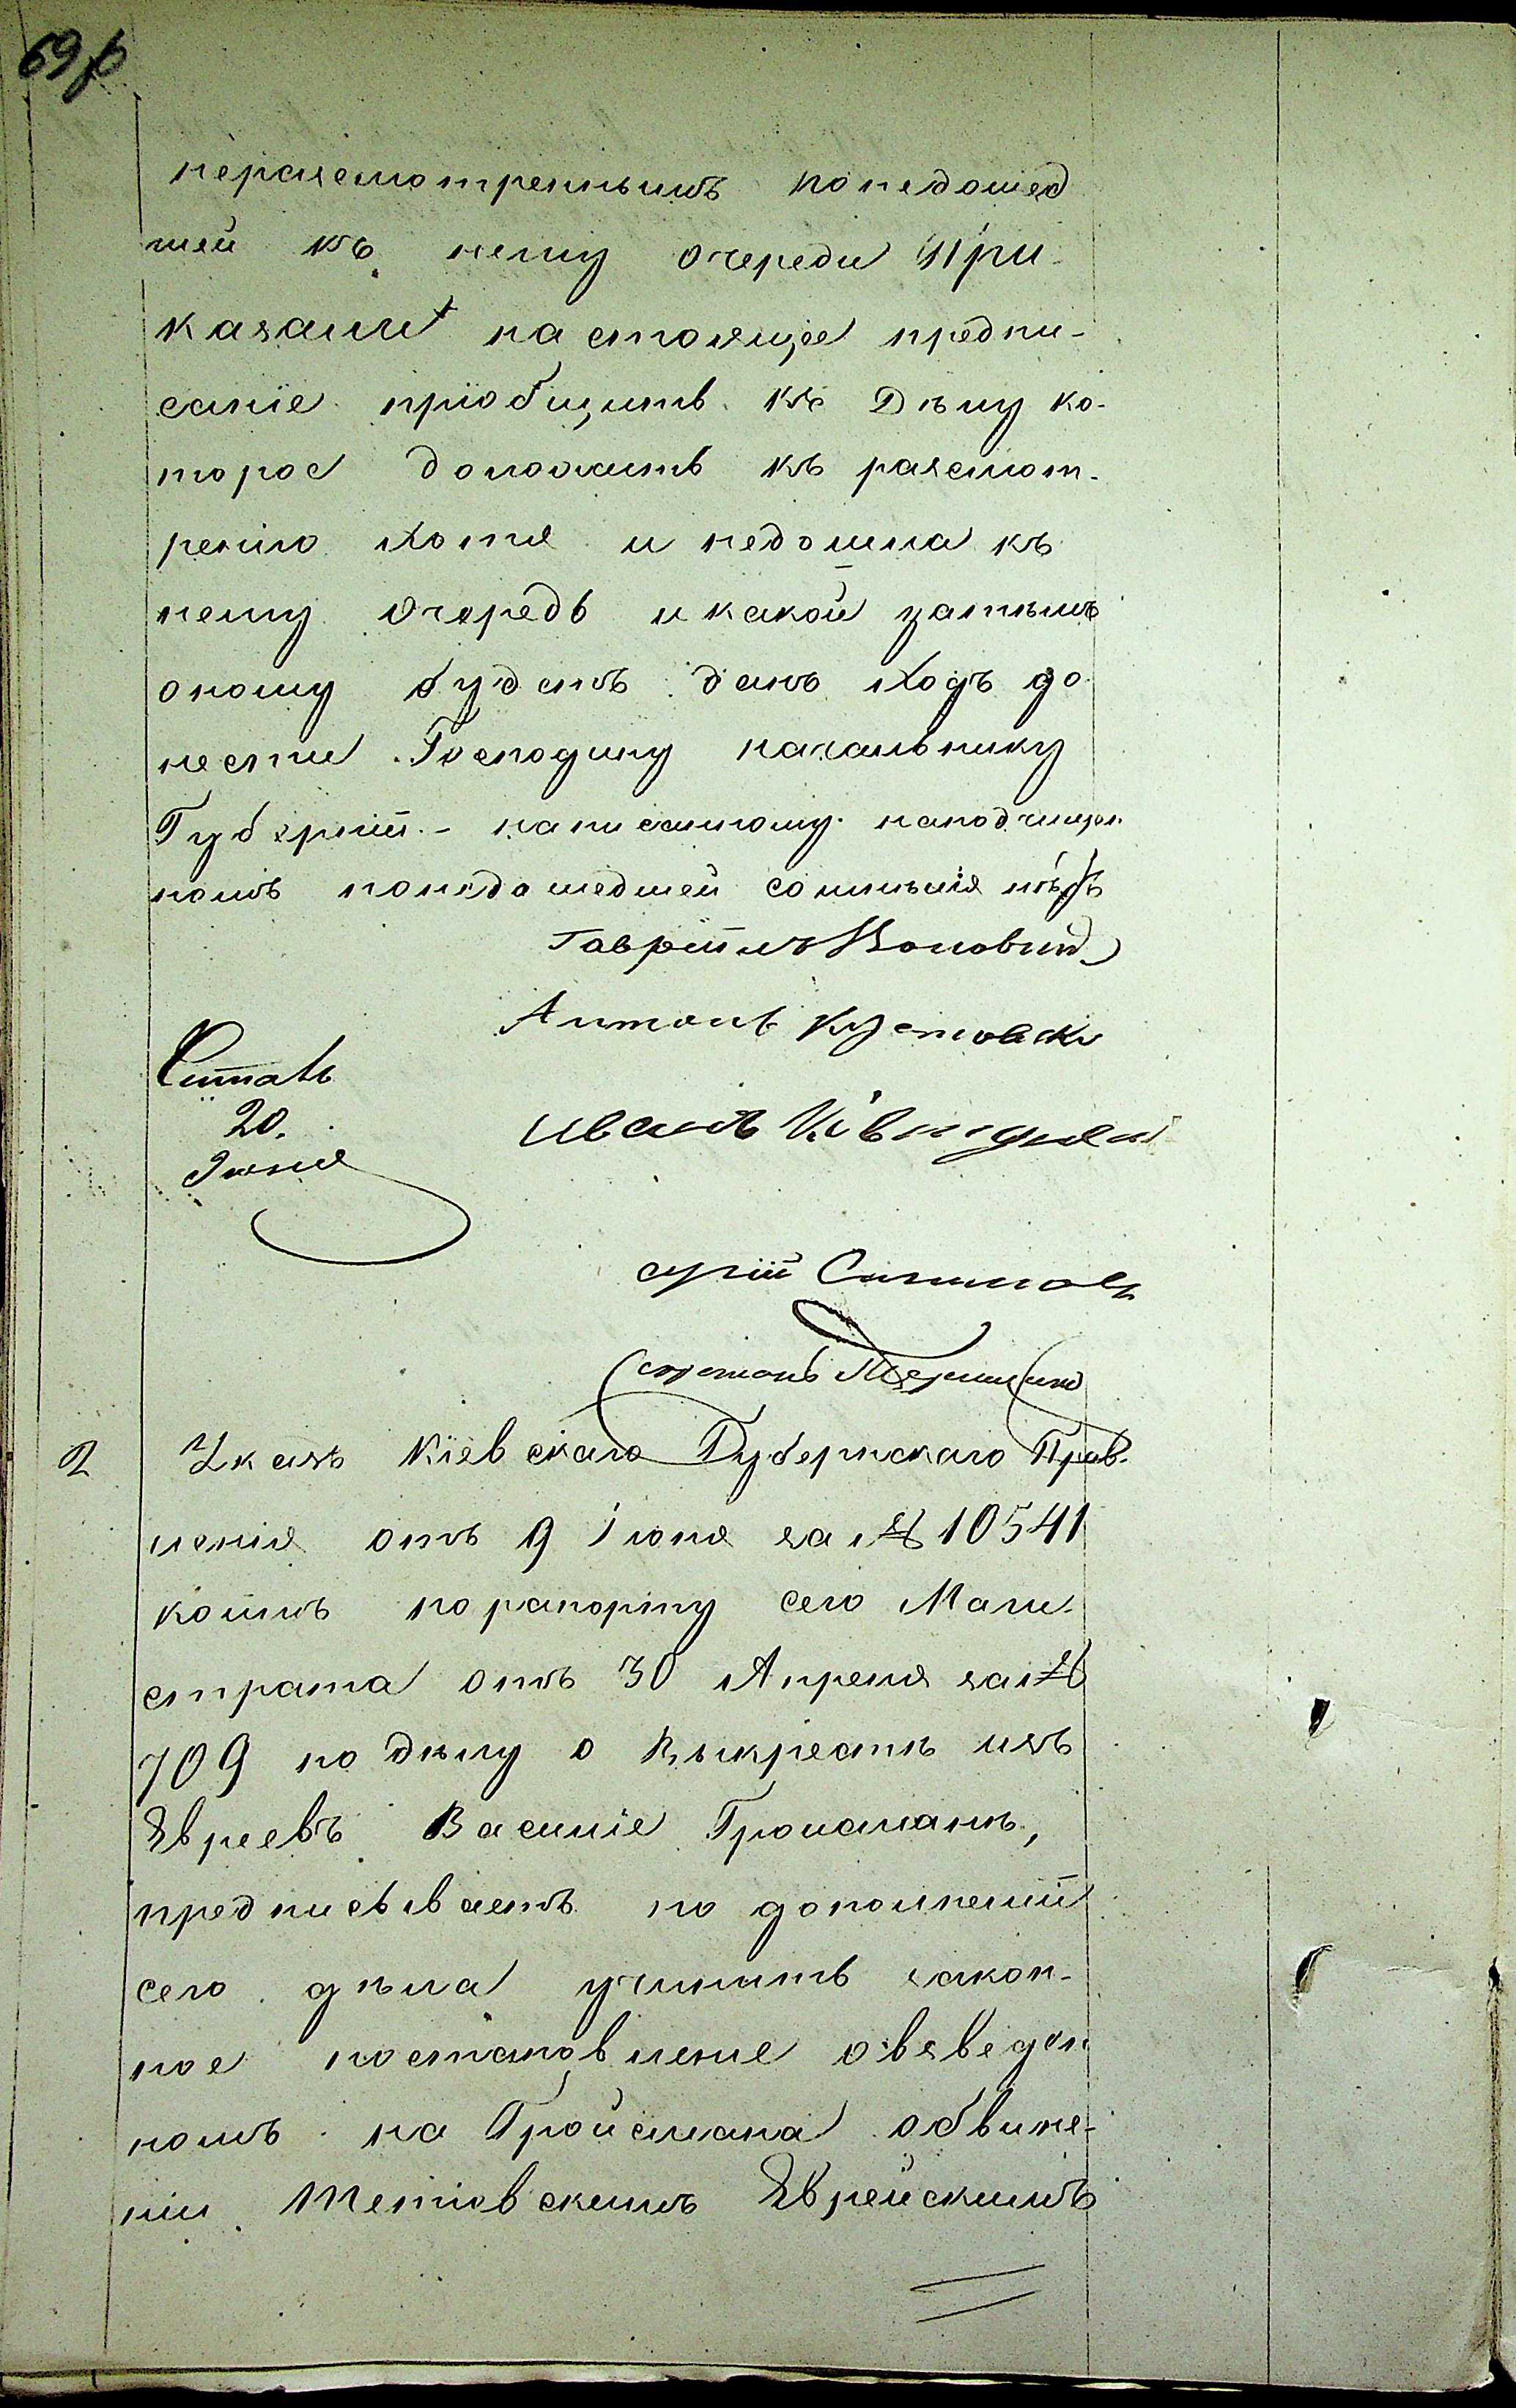 неразсмотреннымъ понедошед
шей къ нему очереди При-
казали настоящее предпи-
саніе пріобщить къ Дѣлу ко-
торое доложить къ разсмот-
ренію Хотя и недошла къ
нему Очередь и какой затѣмъ
оному будетъ данъ Ходъ до
нести Господину начальнику
Губерніи - написанному наподчищен
номъ понедошедшей сомнѣнія нѣтъ
Гавріилъ
Антонъ
Читать
20.
Іюня
Иванъ
2 Указъ Кіевскаго Губернскаго Прав-
ленія отъ 9 Іюня за № 10541
коимъ порапорту сего Маги-
страта отъ 30 Апреля за №
709 по дѣлу о Выкрестѣ изъ
Евреевъ Василіе Гройсманѣ,
предписываетъ по дополненіи
сего дѣла учинить закон-
ное постановленіе овзведен
номъ на Гройсмана обвине-
ніи Еврейскимъ